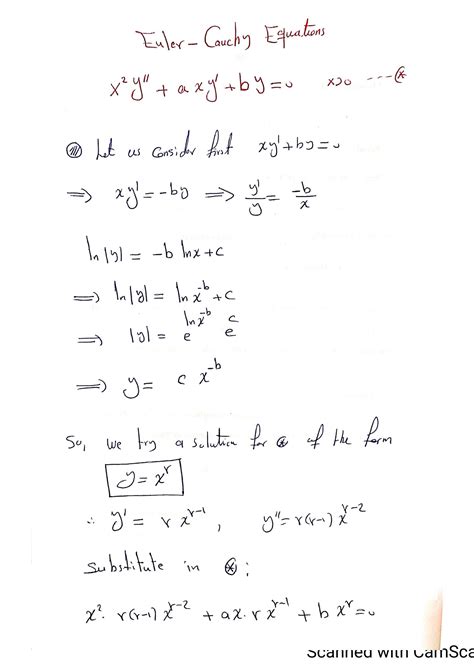 Euler-Cauchy Equations
x²y'' + axy' + by = 0    x>0 ---- ⊛
Let us consider first    xy' + by = 0
⇒ xy' = -by ⇒ y'/y = -b/x
ln|y| = -b lnx + c
⇒ ln|y| = ln x^-b + c
⇒ |y| = e^(ln x^-b) e^c
⇒ y = c x^-b
So, we try a solution for ⊛ of the form
y = x^r
∴ y' = r x^(r-1) ,    y'' = r(r-1) x^(r-2)
substitute in ⊛:
x². r(r-1) x^(r-2) + ax. r x^(r-1) + b x^r = 0
Scanned with CamSca